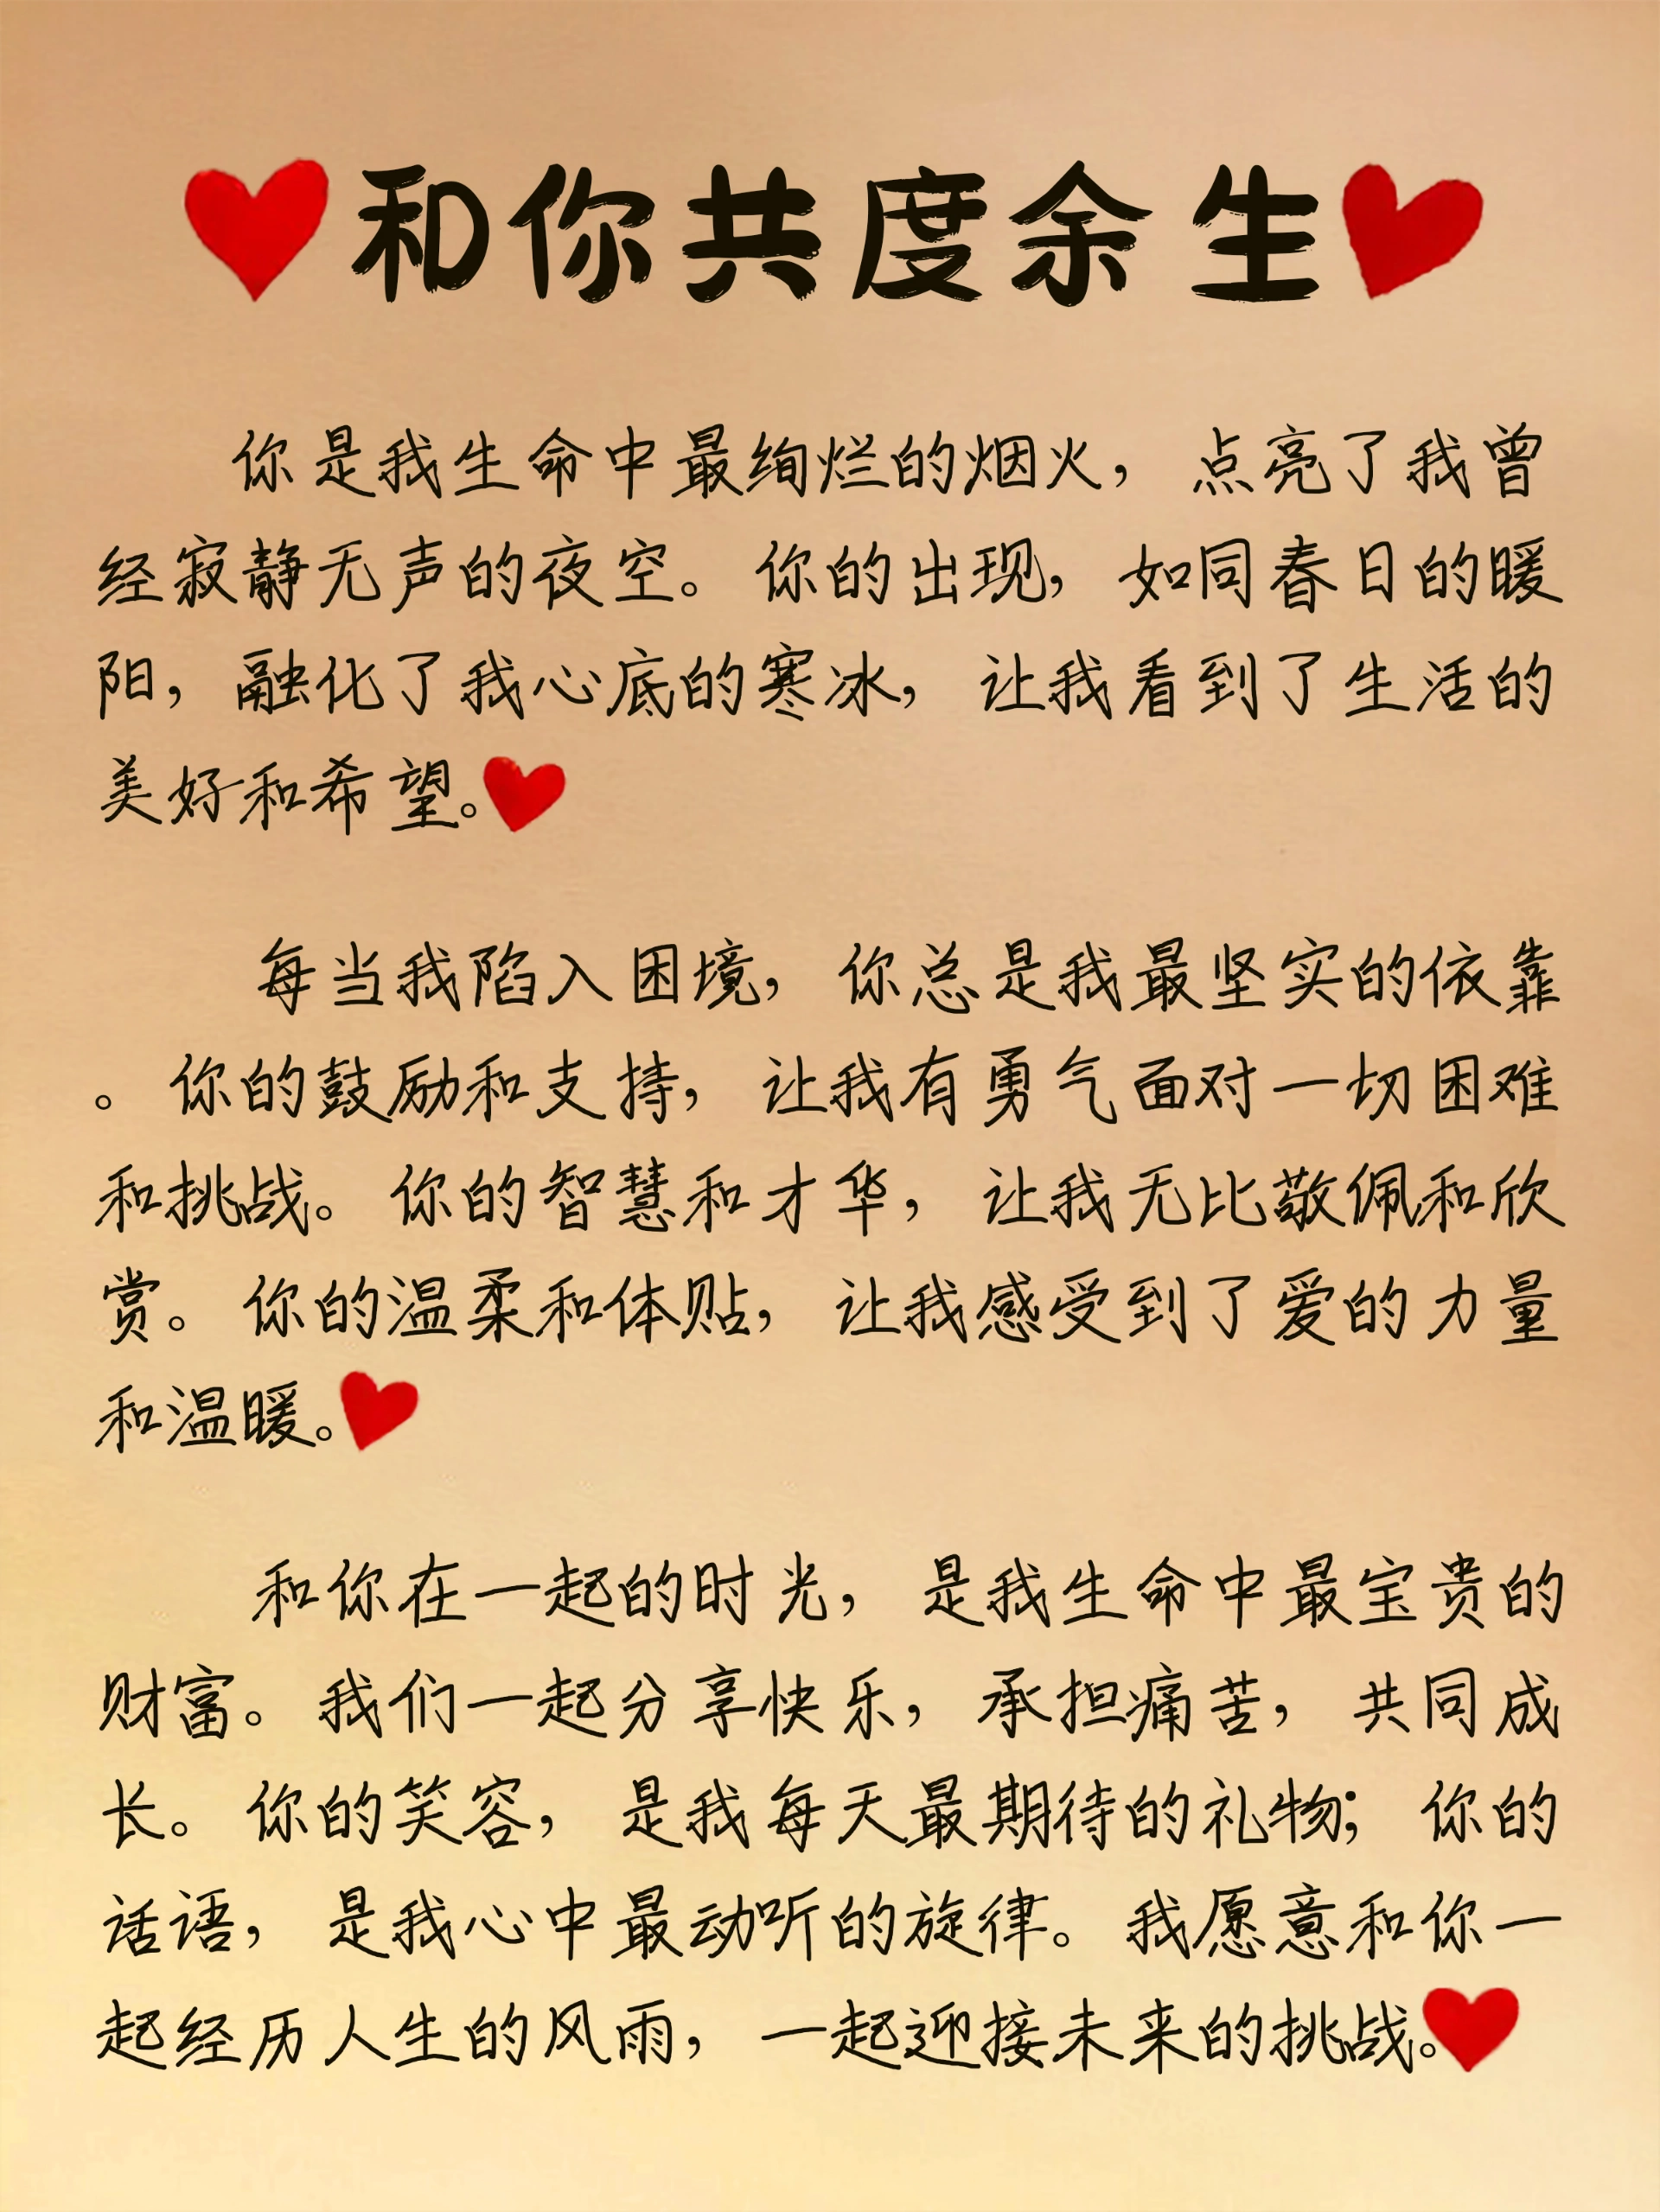 和你共度余生
你是我生命中最绚烂的烟火，点亮了我曾
经寂静无声的夜空。你的出现，如同春日的暖
阳，融化了我心底的寒冰，让我看到了生活的
美好和希望。
每当我陷入困境，你总是我最坚实的依靠
。你的鼓励和支持，让我有勇气面对一切困难
和挑战。你的智慧和才华，让我无比敬佩和欣
赏。你的温柔和体贴，让我感受到了爱的力量
和温暖。
和你在一起的时光，是我生命中最宝贵的
财富。我们一起分享快乐，承担痛苦，共同成
长。你的笑容，是我每天最期待的礼物；你的
话语，是我心中最动听的旋律。我愿意和你一
起经历人生的风雨，一起迎接未来的挑战。